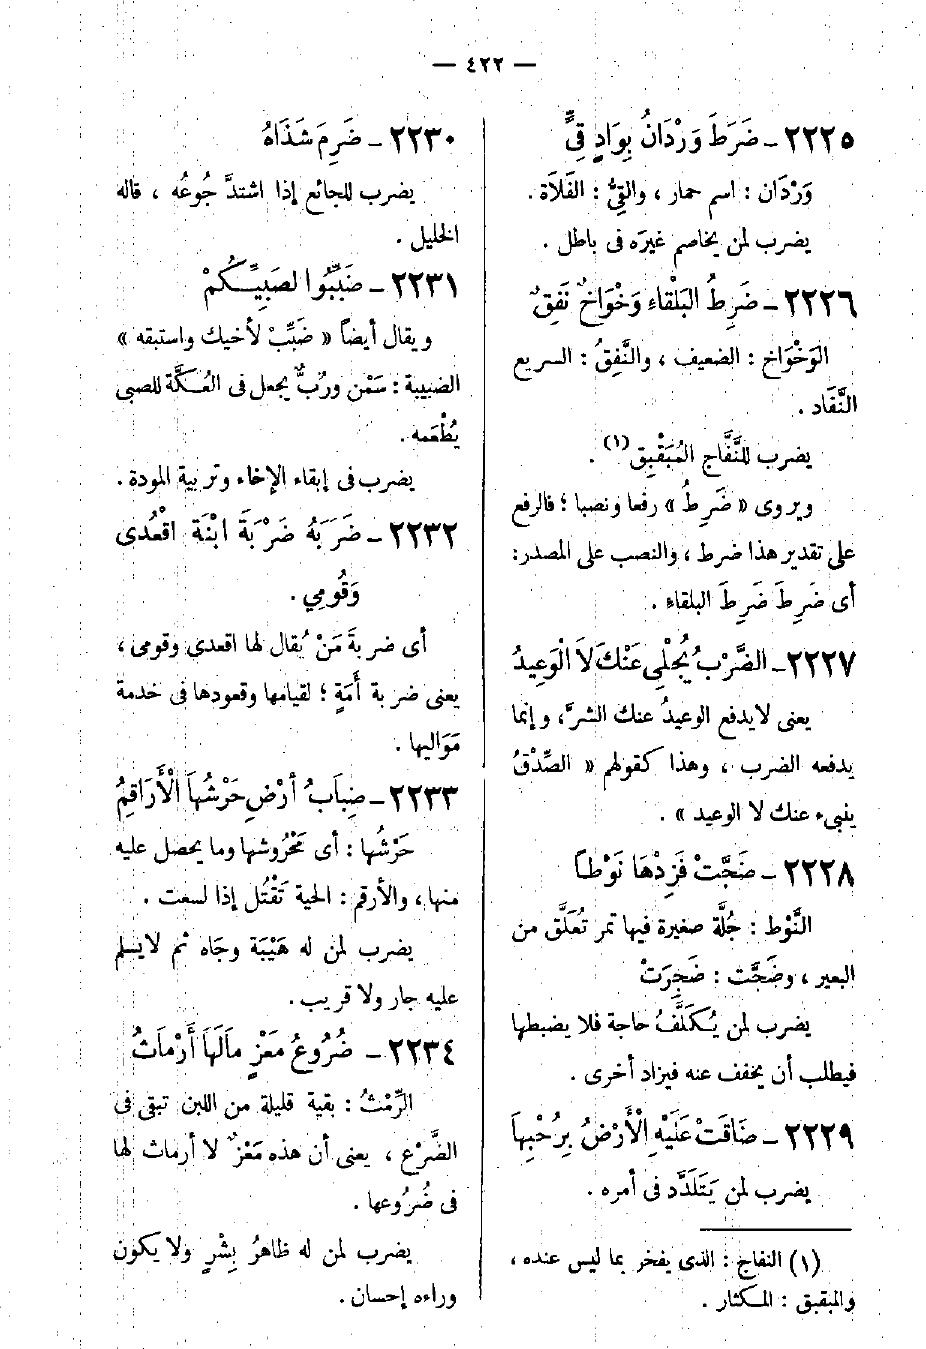 — ٤٢٢ —
٢٢٢٥ – ضَرَطَ وَرْدَانُ بِوَادٍ قِيٍّ
وَرْدَان : اسم حمار ، والقِيُّ : الفَلاَة .
يضرب لمن يخاصم غيرَه فى باطل .
٢٢٢٦ – ضَرِطُ البَلْقَاءِ وَخْوَاخٌ نَفِقٌ
الوَخْوَاخ : الضعيف ، والنَّفِقُ : السريع
النَّفَاد .
يضرب للنَّفَّاج المُبَقْبِق(١) .
ويروى « ضَرِطُ » رفعا ونصبا ؛ فالرفع
على تقدير هذا ضرط ، والنصب على المصدر:
أى ضَرِطَ ضَرِطَ البلقاءِ .
٢٢٢٧ – الضَّرْبُ يُجْلِي عَنْكَ لاَ الْوَعِيدُ
يعنى لايدفع الوعيدُ عنك الشرَّ، وإنما
يدفعه الضرب ، وهذا كقولهم « الصِّدْقُ
ينبىء عنك لا الوعيد » .
٢٢٢٨ – ضَجَّتْ فَزِدْهَا نَوْطاً
النَّوْط : جُلَّة صغيرة فيها تمر تُعَلَّق من
البعير ، وضَجَّت : ضَجِرَتْ
يضرب لمن يُكَلَّفُ حاجة فلا يضبطها
فيطلب أن يخفف عنه فيزاد أخرى .
٢٢٢٩ – ضَاقَتْ عَلَيْهِ الْأَرْضُ بِرُحْبِهاَ
يضرب لمن يَتَلَدَّد فى أمره .
(١) النفاج : الذى يفخر بما ليس عنده ،
والمبقبق : المكثار .
٢٢٣٠ – ضَرِمَ شَذَاهُ
يضرب للجائع إذا اشتدَّ جُوعُه ، قاله
الخليل .
٢٢٣١ – ضَبِّبُوا لصَبِيِّكُمْ
ويقال أيضاً « ضَبِّبْ لأخيك واستبقه »
الضبيبة : سَمْن ورُبٌّ يجعل فى العُكَّة للصبى
يُطْعَمه .
يضرب فى إبقاء الإخاء وتربية المودة .
٢٢٣٢ – ضَرَبَهُ ضَرْبَةَ ابْنَةِ اقْعُدى
وَقُومِي .
أى ضربةَ مَنْ يُقال لها اقعدى وقومى ،
يعنى ضربة أَمَةٍ ؛ لقيامها وقعودها فى خدمة
مَوَاليها .
٢٢٣٣ – ضِبَابُ أرْضٍ حَرْشُهَا الْأَرَاقِمُ
حَرْشُها : أى مَحْرُوشها وما يحصل عليه
منها ، والأرقم : الحية تَقْتُل إذا لسعت .
يضرب لمن له هَيْبَة وجَاه ثم لايسلم
عليه جار ولا قريب .
٢٢٣٤ – ضُرُوعُ مَعْزٍ ماَلَهَا أَرْمَاثُ
الرِّمْثُ : بقية قليلة من اللبن تبقى فى
الضَّرْع ، يعنى أن هذه مَعْز لا أرماث لها
فى ضُرُوعها .
يضرب لمن له ظاهرُ بِشْرٍ ولا يكون
وراءه إحسان .